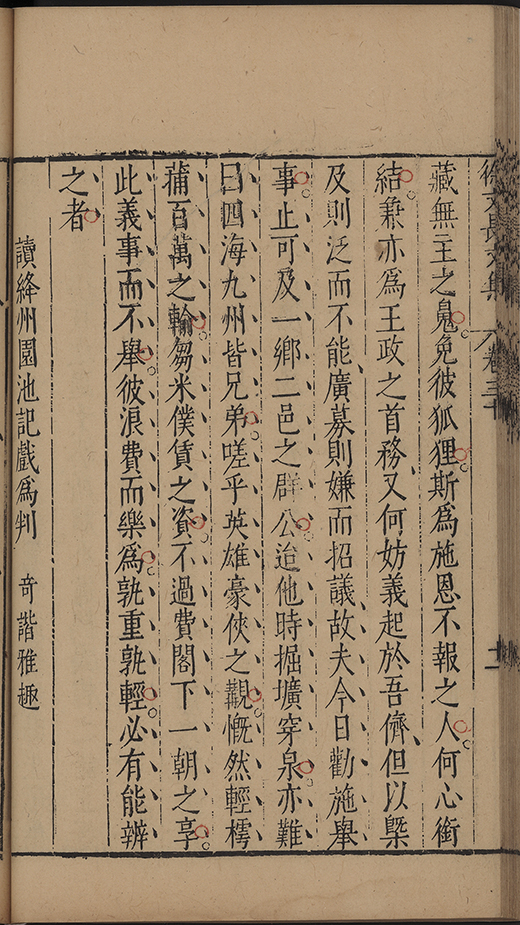 徐文長文集 卷三十 二
藏無主之鬼免彼狐狸斯為施恩不報之人何心銜
結兼亦為王政之首務又何妨義起於吾儕但以槩
及則泛而不能廣募則嫌而招議故夫今日勸施舉
事止可及一鄉二邑之群公迨他時掘壙穿泉亦難
曰四海九州皆兄弟嗟乎英雄豪俠之觀慨然輕樗
蒱百萬之輸芻米僕賃之資不過費閣下一朝之享
此義事而不舉彼浪費而樂為孰重孰輕必有能辨
之者
讀絳州園池記戲為判 奇諧雅趣